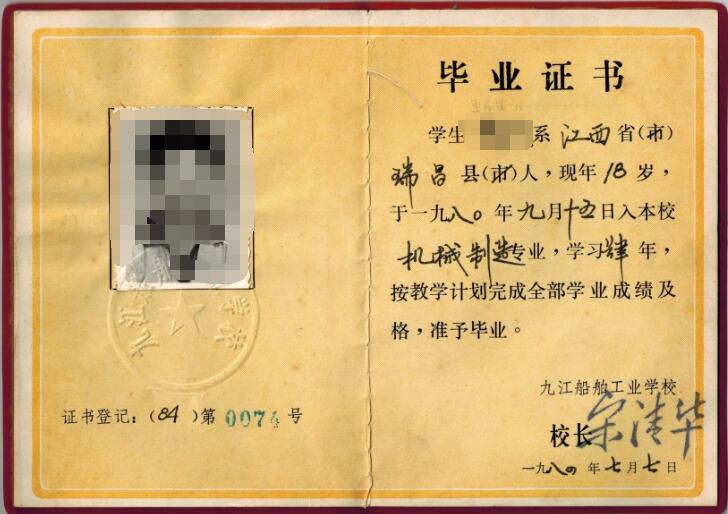 证书登记：(84)第 0074 号
毕业证书
学生 系江西省(市)
瑞昌县(市)人，现年18岁，
于一九八〇年九月十五日入本校
机械制造专业，学习肆年，
按教学计划完成全部学业成绩及
格，准予毕业。
九江船舶工业学校
校长 宋清华
年七月七日